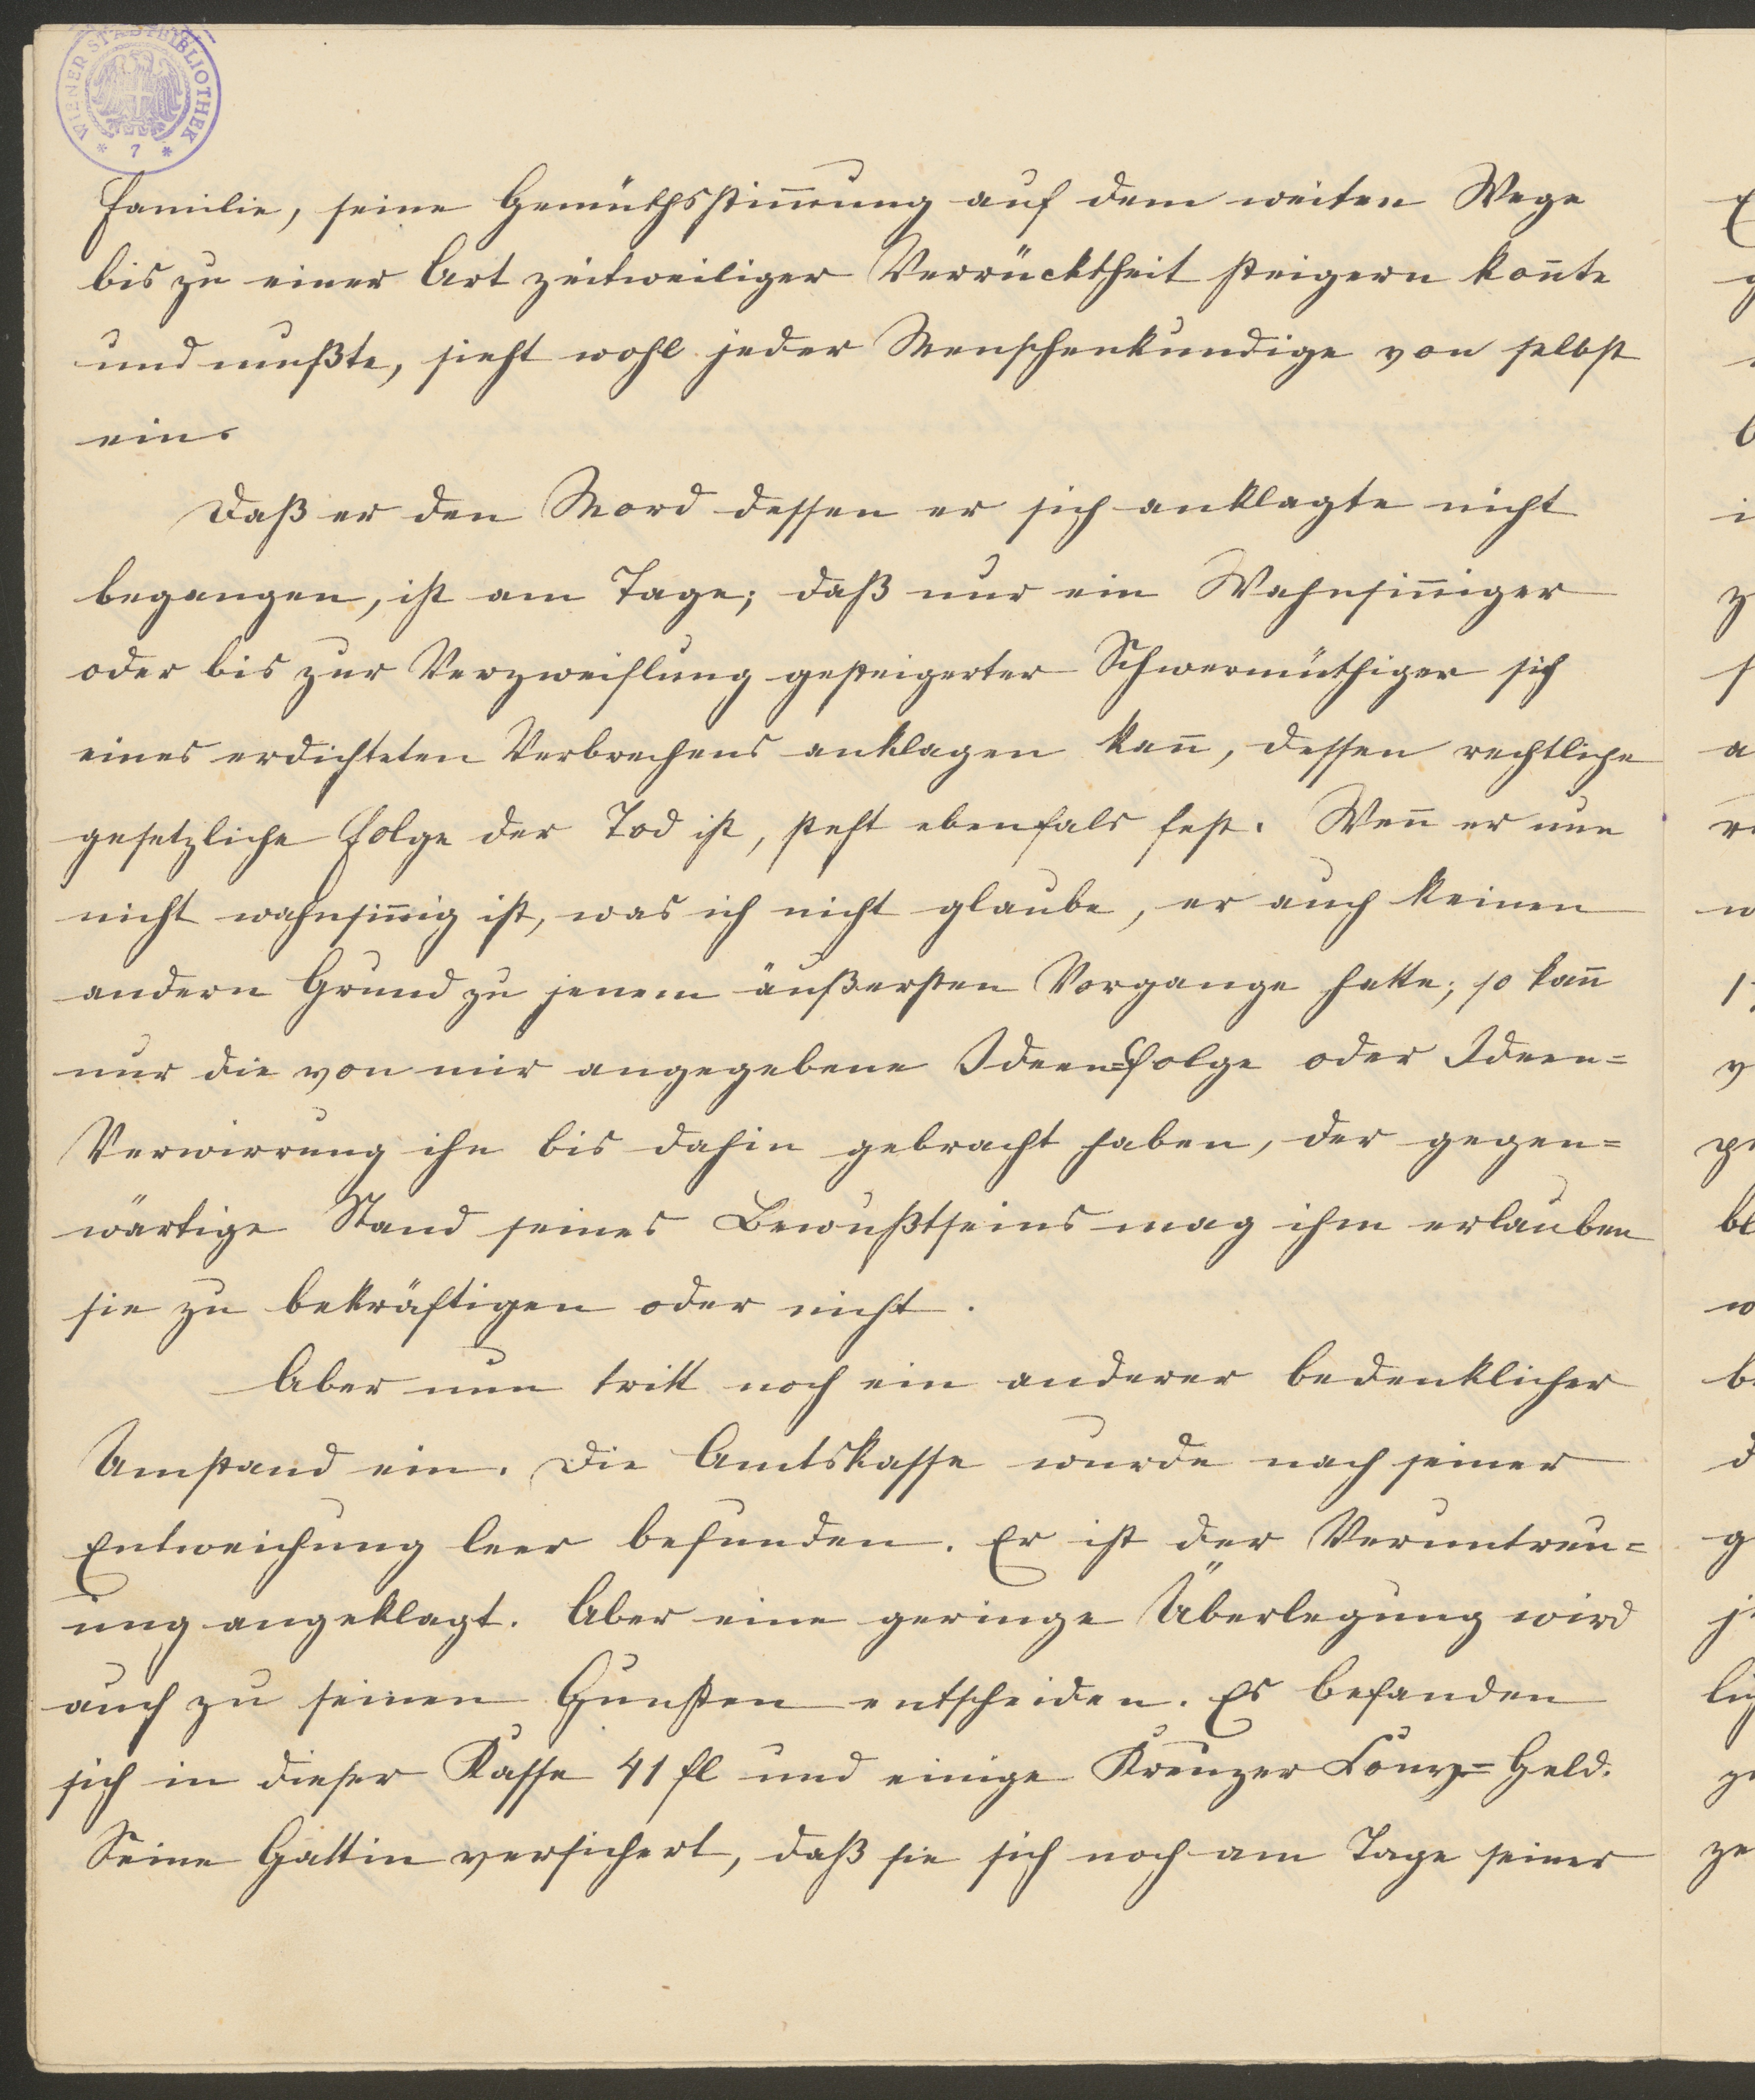 WIENER STADTBIBLIOTHEK
* 7 *
Familie, seine Gemüthsstim̅ung auf dem weiten Wege
bis zu einer Art zeitweiliger Verrücktheit steigern kon̅te
und mußte, sieht wohl jeder Menschenkundige von selbst
ein.
Daß er den Mord dessen er sich anklagte nicht
begangen, ist am Tage; daß nur ein Wahnsin̅iger
oder bis zur Verzweiflung gesteigerter Schwermüthiger sich
eines erdichteten Verbrechens anklagen kan̅, dessen rechtliche
gesetzliche Folge der Tod ist, steht ebenfals fest. Wen̅ er nun
nicht wahnsin̅ig ist, was ich nicht glaube, er auch keinen
andern Grund zu jenem äußersten Vorgange hatte; so kan̅
nur die von mir angegebene Ideen=Folge oder Ideen=
Verwirrung ihn bis dahin gebracht haben, der gegen=
wärtige Stand seines Bewußtseins mag ihm erlauben
sie zu bekräftigen oder nicht.
Aber nun tritt noch ein anderer bedenklicher
Umstand ein. Die Amtskasse wurde nach seiner
Entweichung leer befunden. Er ist der Veruntreu=
ung angeklagt. Aber eine geringe Überlegung wird
auch zu seinen Gunsten entscheiden. Es befanden
sich in dieser Kasse 41 fl und einige Kreuzer Conv=Geld.
Seine Gattin versichert, daß sie sich noch am Tage seiner